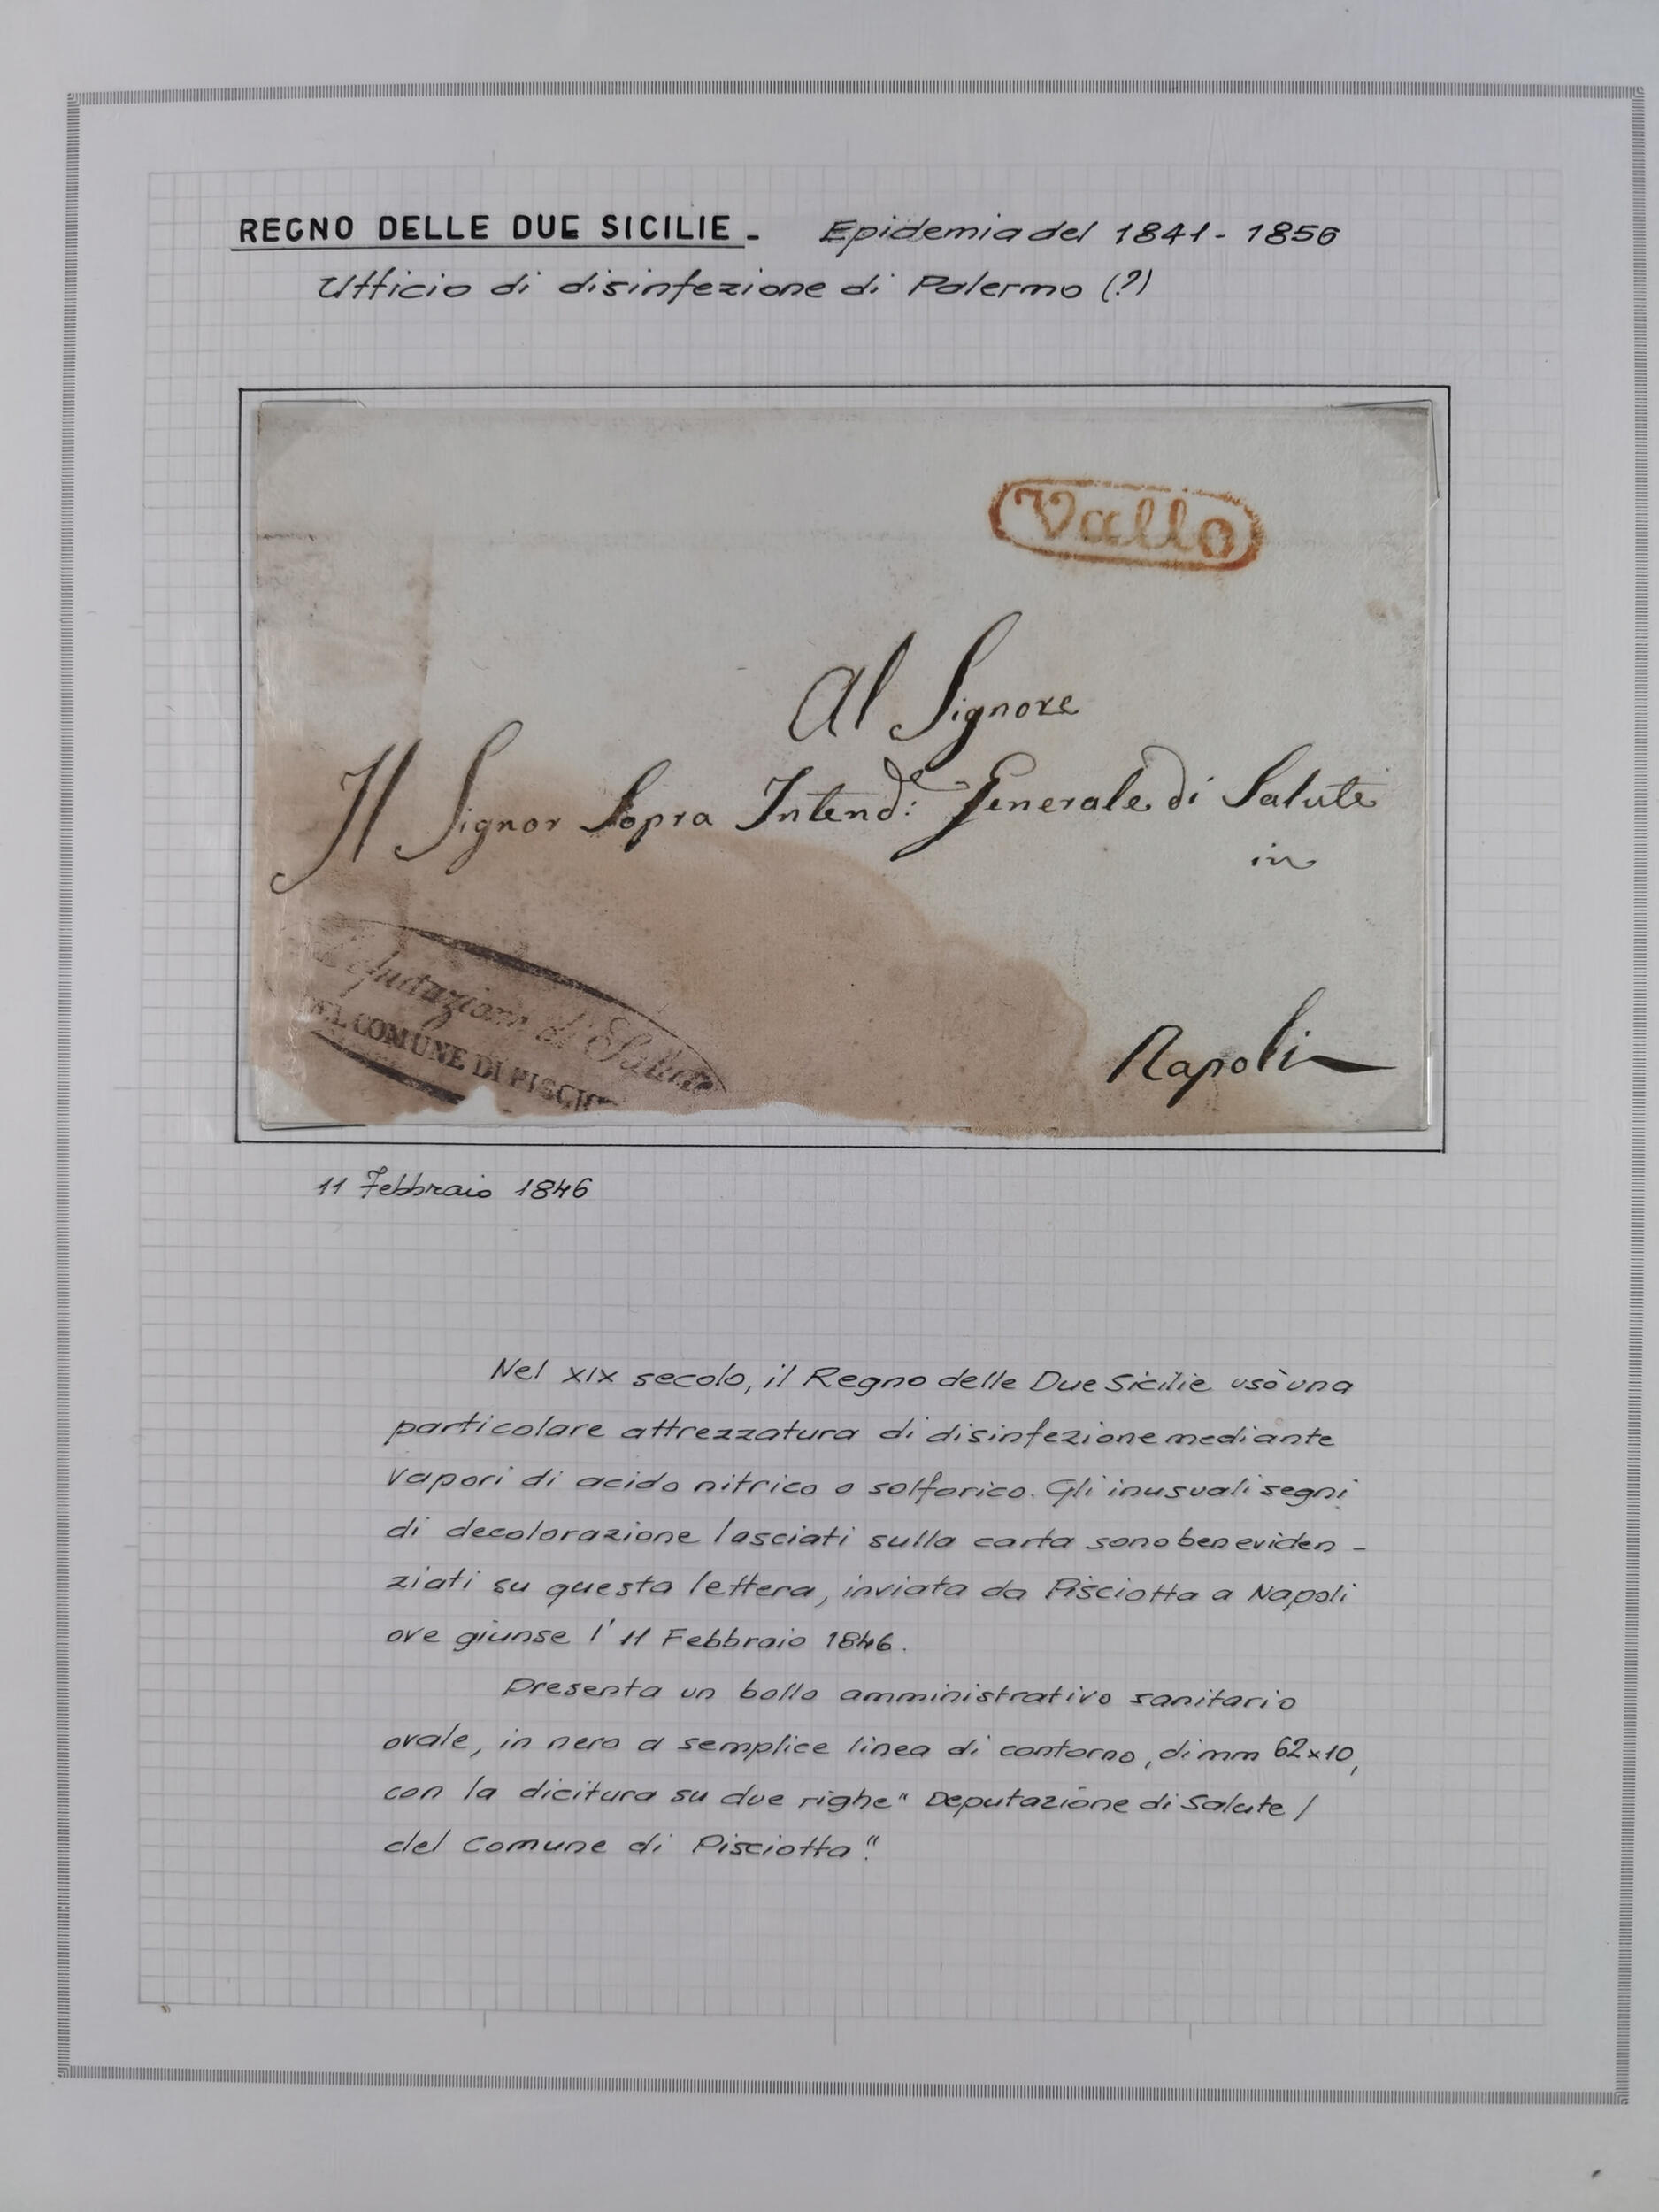 REGNO DELLE DUE SICILIE - Epidemia del 1841 - 1856
Ufficio di disinfezione di Palermo (?)
Vallo
Al Signore
Il Signor Sopra Intend:e Generale di Salute
in
Napoli
Deputazione di Salute
DEL COMUNE DI PISCIO
11 Febbraio 1846
Nel XIX secolo, il Regno delle Due Sicilie usò una
particolare attrezzatura di disinfezione mediante
vapori di acido nitrico o solforico. Gli inusuali segni
di decolorazione lasciati sulla carta sono ben eviden -
ziati su questa lettera, inviata da Pisciotta a Napoli
ove giunse l'11 Febbraio 1846.
Presenta un bollo amministrativo sanitario
ovale, in nero a semplice linea di contorno, di mm 62x10,
con la dicitura su due righe " Deputazione di Salute /
del Comune di Pisciotta".